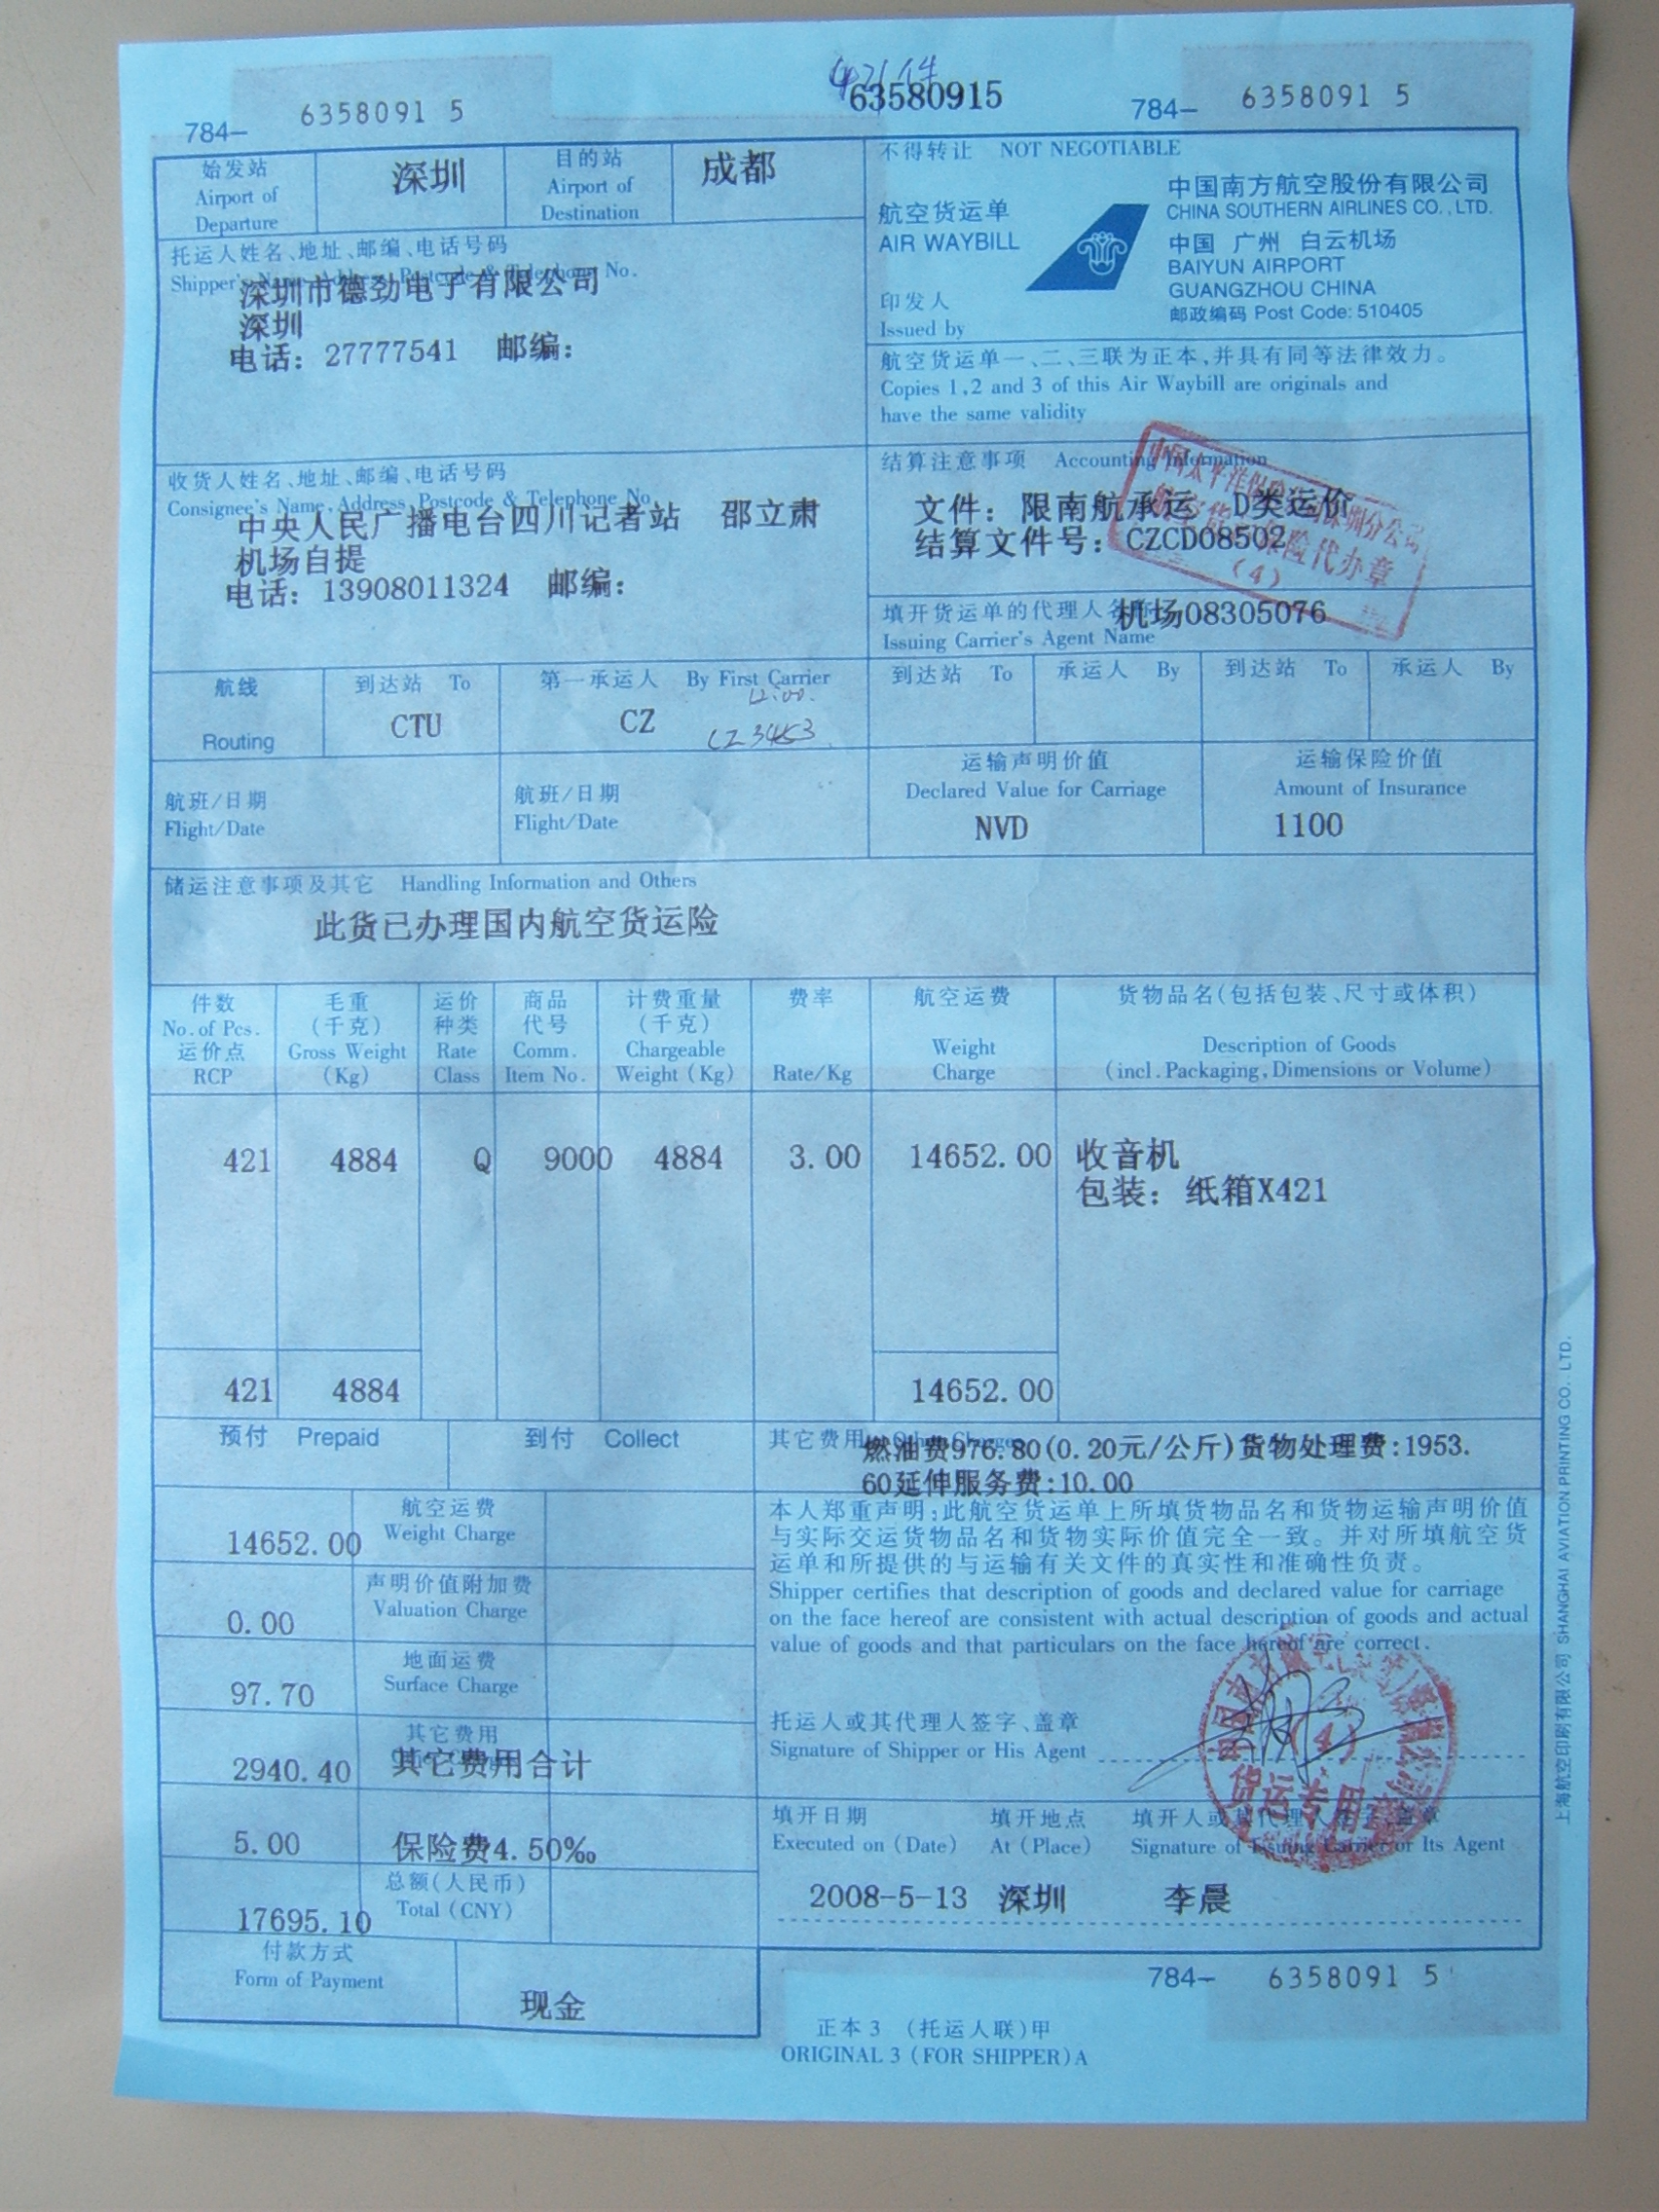 63580915
784- 6358091 5
784- 6358091 5
始发站
Airport of
Departure
深圳
目的站
Airport of
Destination
成都
托运人姓名、地址、邮编、电话号码
Shipper's Name, Address, Postcode & Telephone No.
深圳市德劲电子有限公司
深圳
电话: 27777541 邮编:
不得转让 NOT NEGOTIABLE
航空货运单
AIR WAYBILL
印发人
Issued by
中国南方航空股份有限公司
CHINA SOUTHERN AIRLINES CO., LTD.
中国 广州 白云机场
BAIYUN AIRPORT
GUANGZHOU CHINA
邮政编码 Post Code: 510405
航空货运单一、二、三联为正本,并具有同等法律效力。
Copies 1,2 and 3 of this Air Waybill are originals and
have the same validity
收货人姓名、地址、邮编、电话号码
Consignee's Name, Address, Postcode & Telephone No.
中央人民广播电台四川记者站 邵立肃
机场自提
电话: 13908011324 邮编:
结算注意事项 Accounting Information
文件: 限南航承运 D类运价
结算文件号: CZCD08502
险代办章
(4)
填开货运单的代理人名称
机场08305076
Issuing Carrier's Agent Name
航线
Routing
到达站 To
CTU
第一承运人 By First Carrier
CZ
12:00.
CZ3453
到达站 To
承运人 By
到达站 To
承运人 By
航班/日期
Flight/Date
航班/日期
Flight/Date
运输声明价值
Declared Value for Carriage
NVD
运输保险价值
Amount of Insurance
1100
储运注意事项及其它 Handling Information and Others
此货已办理国内航空货运险
件数
No. of Pcs.
运价点
RCP
毛重
(千克)
Gross Weight
(Kg)
运价
种类
Rate
Class
商品
代号
Comm.
Item No.
计费重量
(千克)
Chargeable
Weight (Kg)
费率
Rate/Kg
航空运费
Weight
Charge
货物品名(包括包装、尺寸或体积)
Description of Goods
(incl. Packaging, Dimensions or Volume)
421 4884 Q 9000 4884 3.00 14652.00 收音机
包装: 纸箱X421
421 4884 14652.00
预付 Prepaid
到付 Collect
其它费用
燃油费976.80(0.20元/公斤)货物处理费:1953.
60延伸服务费:10.00
14652.00
航空运费
Weight Charge
0.00
声明价值附加费
Valuation Charge
97.70
地面运费
Surface Charge
2940.40
其它费用
其它费用合计
5.00
保险费4.50‰
17695.10
总额(人民币)
Total (CNY)
付款方式
Form of Payment
现金
本人郑重声明:此航空货运单上所填货物品名和货物运输声明价值
与实际交运货物品名和货物实际价值完全一致。并对所填航空货
运单和所提供的与运输有关文件的真实性和准确性负责。
Shipper certifies that description of goods and declared value for carriage
on the face hereof are consistent with actual description of goods and actual
value of goods and that particulars on the face hereof are correct.
托运人或其代理人签字、盖章
Signature of Shipper or His Agent
(4)
货运专用章
填开日期
Executed on (Date)
填开地点
At (Place)
填开人或其代理人签字、盖章
Signature of Issuing Carrier or Its Agent
2008-5-13 深圳 李晨
784- 6358091 5
正本3 (托运人联)甲
ORIGINAL 3 (FOR SHIPPER) A
上海航空印刷有限公司 SHANGHAI AVIATION PRINTING CO., LTD.